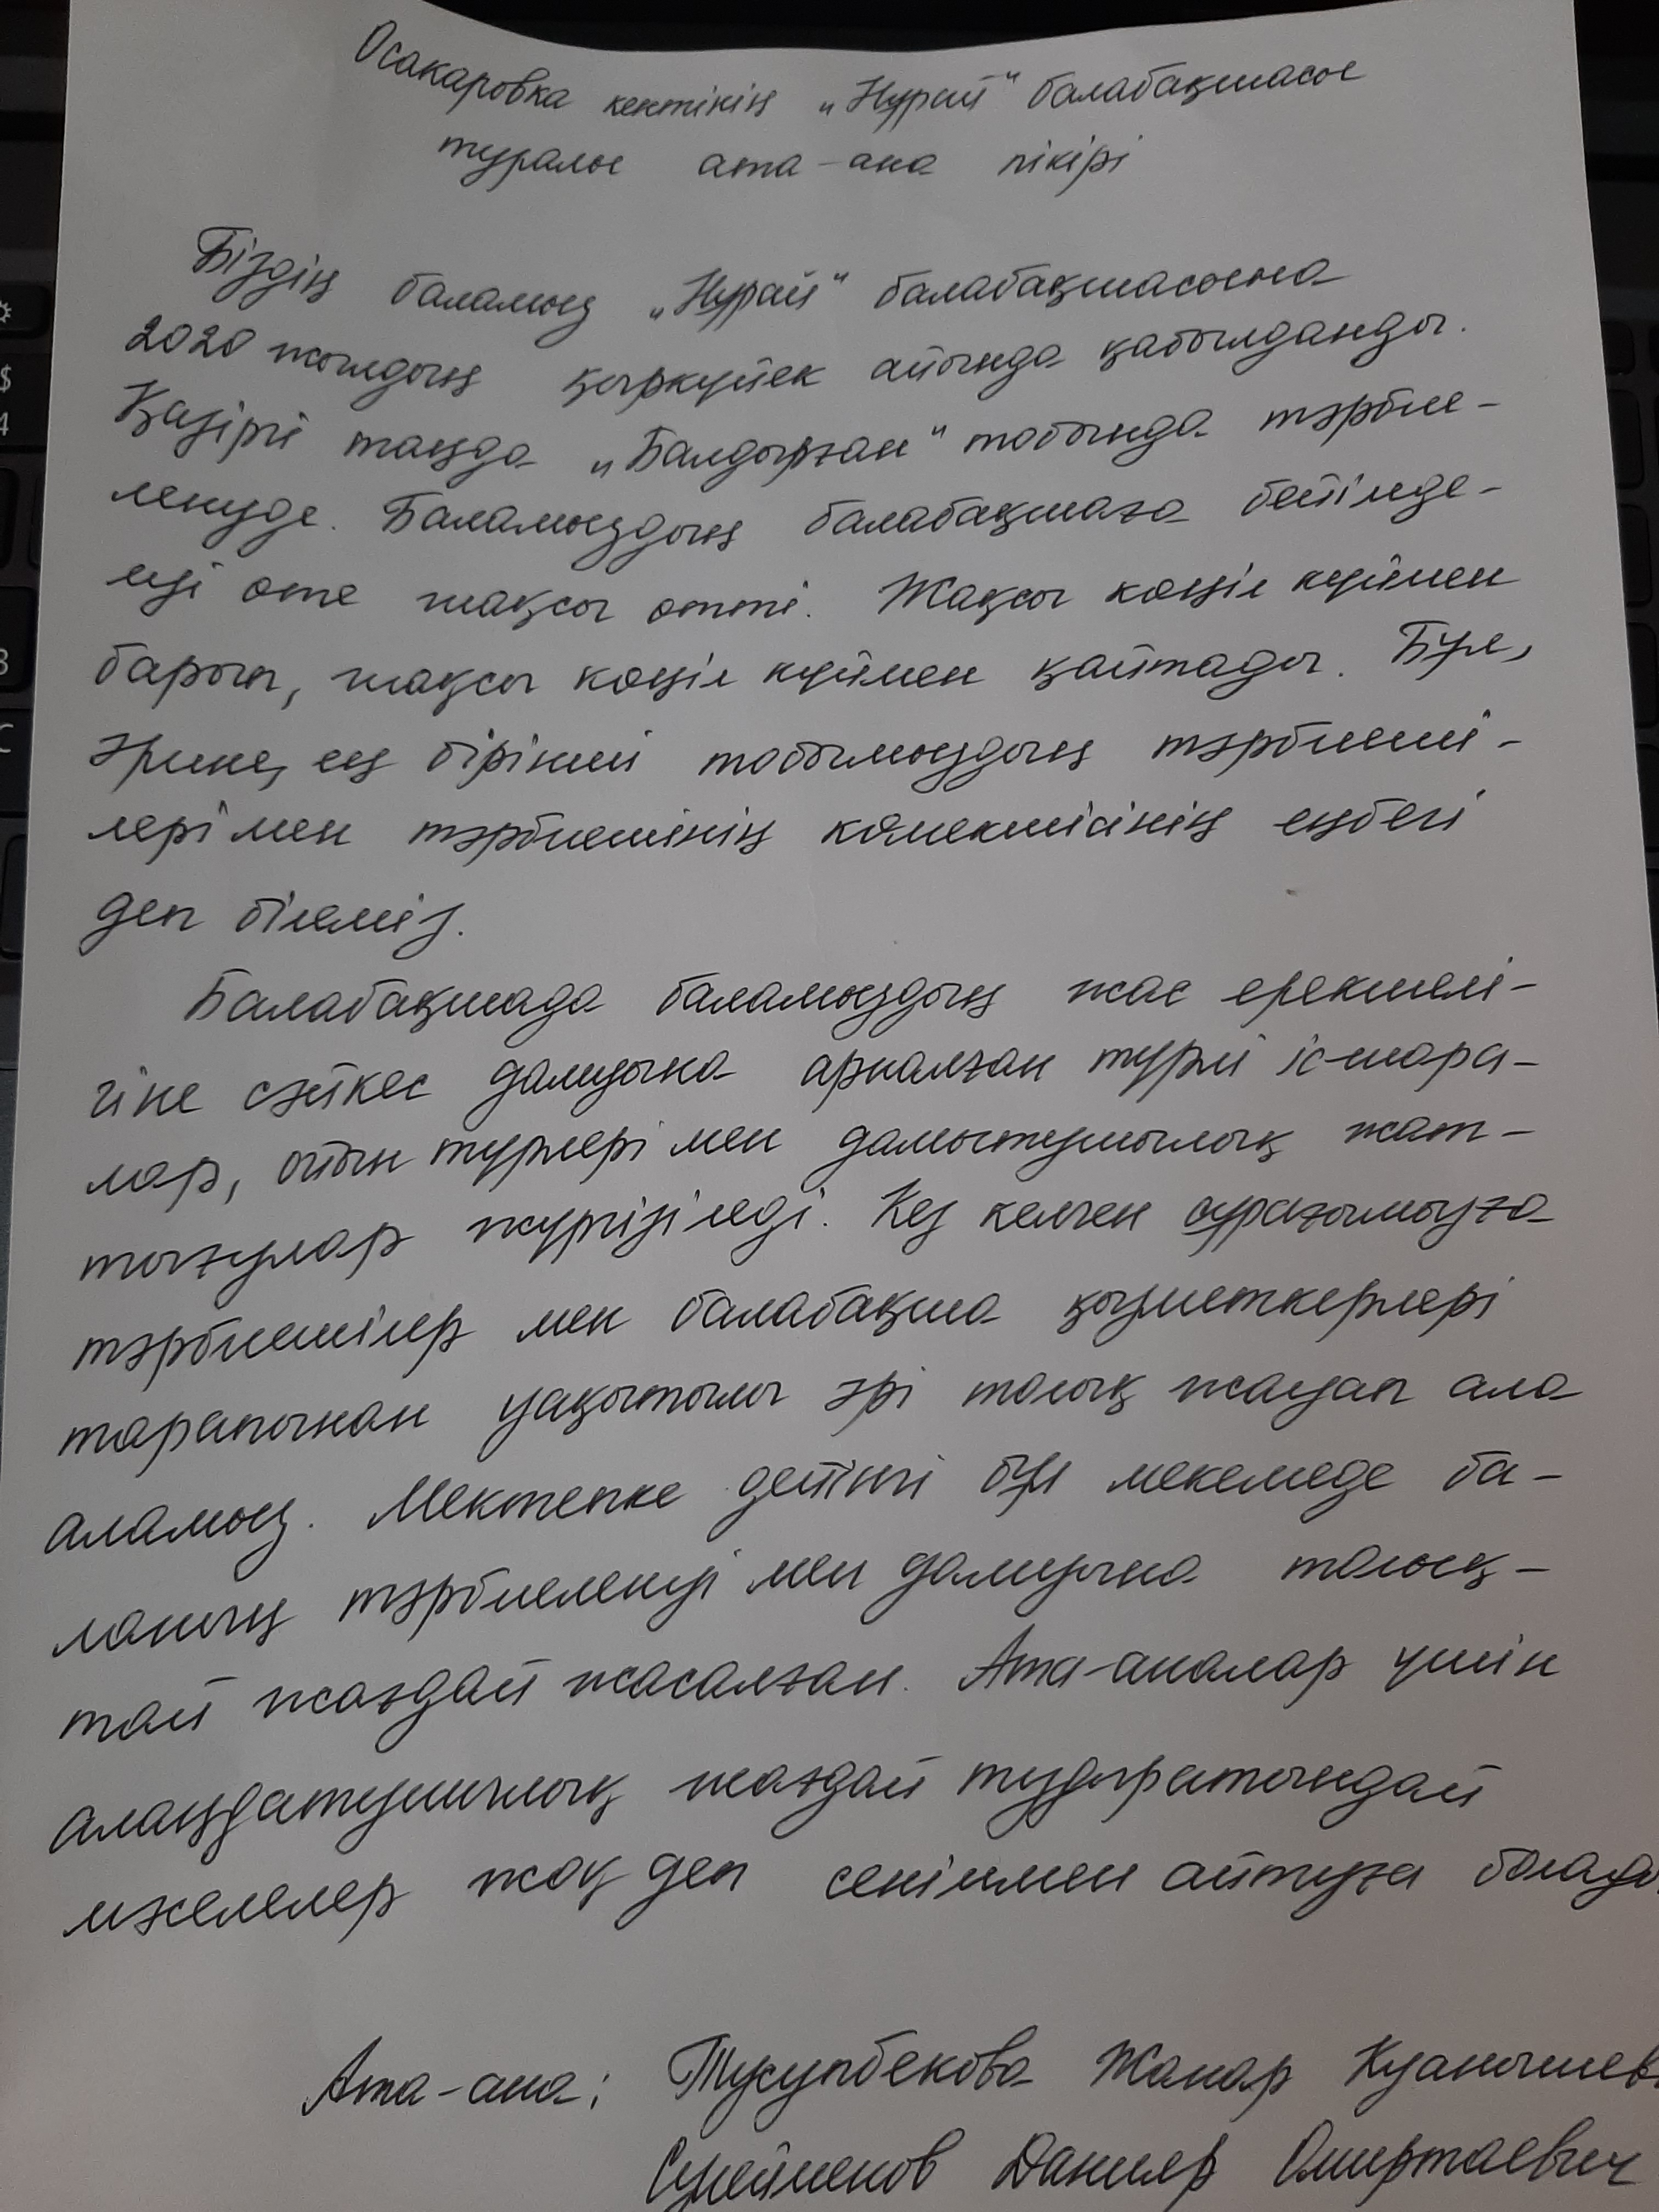 Осакаровка кентінің „Нұрай“ балабақшасы
туралы ата-ана пікірі
Біздің баламыз „Нұрай“ балабақшасына
2020 жылдың қыркүйек айында қабылданды.
Қазіргі таңда „Балдырған“ тобында тәрбие-
ленуде. Баламыздың балабақшаға бейімде-
луі өте жақсы өтті. Жақсы көңіл күймен
барып, жақсы көңіл күймен қайтады. Бұл,
әрине, ең бірінші тобымыздың тәрбиеші-
лері мен тәрбиешінің көмекшісінің еңбегі
деп білеміз.
Балабақшада баламыздың жас ерекшелі-
гіне сәйкес дамуына арналған түрлі іс-шара-
лар, ойын түрлері мен дамытушылық жат-
тығулар жүргізіледі. Кез келген сұрағымызға
тәрбиешілер мен балабақша қызметкерлері
тарапынан уақытылы әрі толық жауап ала
аламыз. Мектепке дейінгі бұл мекемеде ба-
ланың тәрбиеленуі мен дамуына толық-
тай жағдай жасалған. Ата-аналар үшін
алаңдатушылық жағдай тудыратындай
мәселелер жоқ деп сеніммен айтуға болады
Ата-ана: Тусупбекова Жанар Куанышев
Сулейменов Данияр Омиртаевич